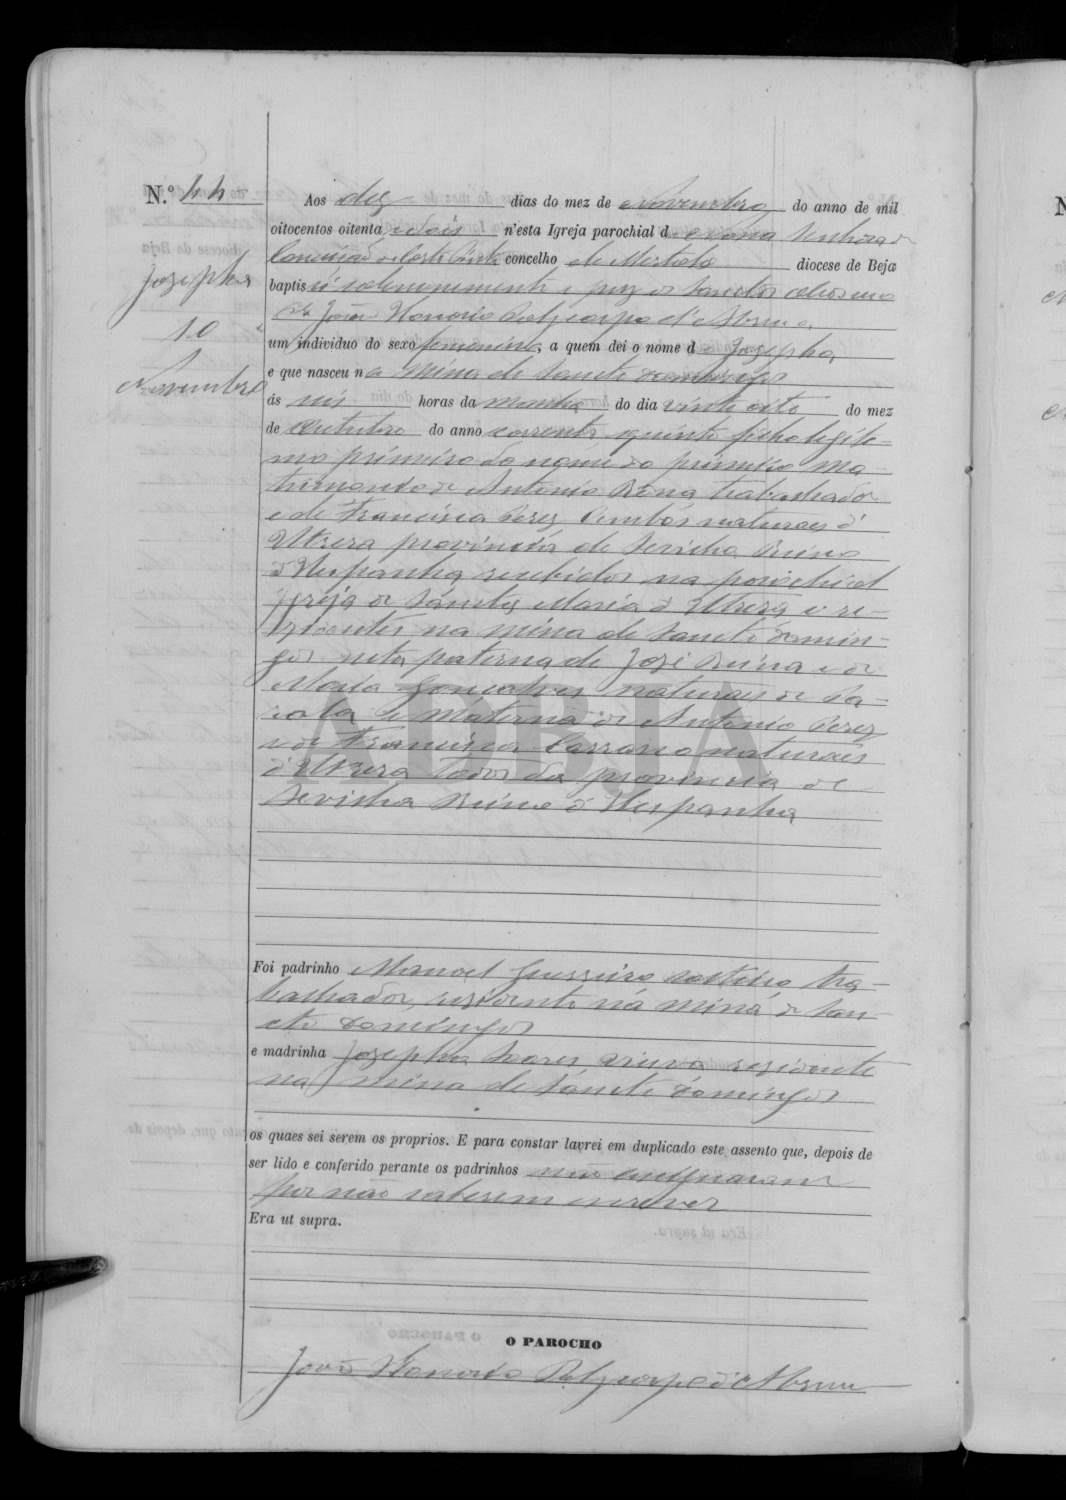 N.º 44
Aos dez dias do mez de Novembro do anno de mil
oitocentos oitenta e dois n'esta Igreja parochial d
concelho de Mertola diocese de Beja
Josepha
baptisei solemnemente e puz os Sanctos oleos
João Honorio Polycarpo d'Abreu
10
um individuo do sexo femenino, a quem dei o nome de Josepha
Novembro
e que nasceu na mina de Sancto Domingos
ás seis horas da manhã do dia vinte oito do mez
de Outubro do anno corrente, quinto filho legite-
mo primeiro do nome do primeiro ma-
trimonio de Antonio Reina trabalhador
e de Francisca Perez ambos naturaes d'
Utrera provincia de Sevilha Reino
d'Hespanha recebidos na parochial
Igreja de Sancta Maria d'Utrera e re-
zidentes na mina de Sancto Domin-
gos neta paterna de José Reina e de
Maria Gonçalves naturaes de
e Materna de Antonio Perez
e de Francisca naturaes
d'Utrera todos da provincia de
Sevilha Reino d'Hespanha
ADBJA
Foi padrinho Manoel Guerreiro solteiro tra-
balhador, rezidente na mina de San-
cto Domingos
e madrinha Josepha Soares viuva rezidente
na mina de Sancto Domingos
os quaes sei serem os proprios. E para constar lavrei em duplicado este assento que, depois de
ser lido e conferido perante os padrinhos não assignaram
por não saberem escrever
Era ut supra.
O PAROCHO
João Honorio Polycarpo d'Abreu